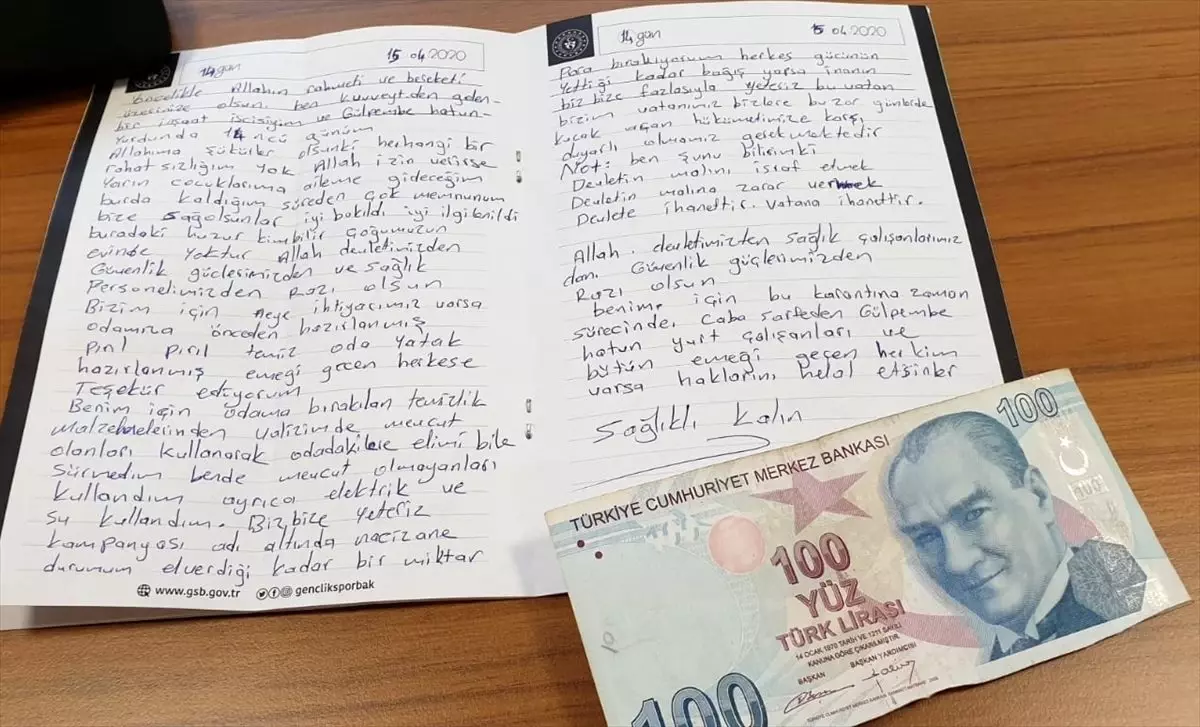 14.gün
15 04.2020
Öncelikle Allahın rahmeti ve bereketi
üzerinize olsun. ben kuvveytden gelen-
bir inşaat işcisiyim ve Gülpembe hatun-
Yurdunda 14ncü günüm
Allahıma şükürler olsunki herhangi bir
rahat sızlığım yok Allah izin verirse
Yarın çocuklarıma aileme gideceğim
burda kaldığım süreden çok memnunum
bize sağolsunlar iyi bakıldı iyi ilgilenildi
buradaki huzur kimbilir çoğumuzun
evinde yoktur Allah devletimizden
Güvenlik güçlerimizden ve sağlık
Personelimizden Razı olsun
Bizim için neye ihtiyacımız varsa
odamıza önceden hazırlanmış
pırıl pırıl temiz oda yatak
hazırlanmış emeği geçen herkese
Teşekür ediyorum
Benim için odama bırakılan temizlik
malzemelerinden valizimde mevcut
olanları kullanarak odadakilere elimi bile
sürmedim bende mevcut olmayanları
kullandım ayrıca elektrik ve
su kullandım. Biz bize yeteriz
kampanyası adı altında nacizane
durumum elverdiği kadar bir miktar
www.gsb.gov.tr
genclikSporbak
14.gün
15 04.2020
Para bırakıyorum herkes gücünün
Yettiği kadar bağış yarsa inanın
biz bize fazlasıyla yeteriz bu vatan
bizim vatanımız bizlere bu zor günlerde
kucak açan hükümetimize karşı
duyarlı olmamız gerekmektedir
Not: ben şunu bilirimki
Devletin malını israf etmek
Devletin malına zarar vermek
Devlete ihanettir. Vatana ihanettir.
Allah. devletimizten sağlık çalışanlarımız
dan. Güvenlik güçlerimizden
Razı olsun
benim, için bu karantina zaman
sürecinde, Çaba sarfeden Gülpembe
hatun yurt çalışanları ve
bütün emeği geçen herkim
varsa haklarını helal etsinler
Sağlıklı kalın
100
TÜRKİYE CUMHURİYET MERKEZ BANKASI
100
100
YÜZ
TÜRK LİRASI
14 OCAK 1970 TARİH VE 1211 SAYILI
KANUNA GÖRE ÇIKARILMIŞTIR
BAŞKAN
BAŞKAN YARDIMCISI
100